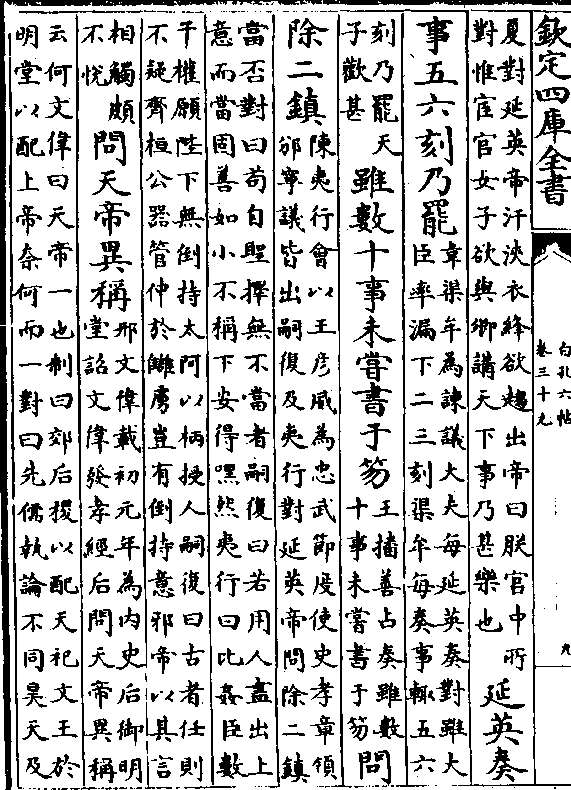 欽定四庫全書
白孔六帖
卷三十九
九
夏對延英帝汗浹衣絳欲趨出帝曰朕宫中所
對惟宦官女子欲與卿講天下事乃甚樂也
延英奏
事五六刻乃罷
韋渠牟為諫議大夫每延英奏對雖大
臣率漏下二三刻渠牟每奏事輒五六
刻乃罷天
子歡甚
雖數十事未嘗書于笏
王播善占奏雖數
十事未嘗書于笏
問
除二鎮
陳夷行會以王彦威為忠武節度使史孝章領
邠寧議皆出嗣復及夷行對延英帝問除二鎮
當否對曰苟自聖擇無不當者嗣復曰若用人盡出上
意而當固善如小不稱下安得嘿然夷行曰比姦臣數
干權願陛下無倒持太阿以柄授人嗣復曰古者任則
不疑齊桓公器管仲於讎虜豈有倒持意邪帝以其言
相觸頗
不悦
問天帝異稱
邢文偉載初元年為内史后御明
堂詔文偉發孝經后問天帝異稱
云何文偉曰天帝一也制曰郊后稷以配天祀文王於
明堂以配上帝奈何而一對曰先儒執論不同昊天及